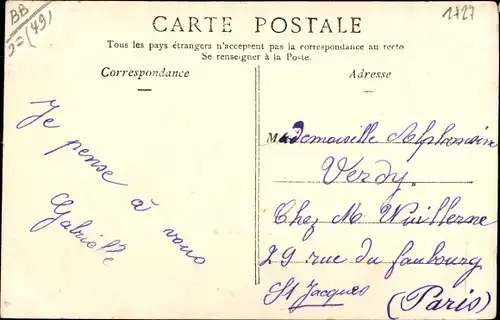 BB
(49)
1727
CARTE POSTALE
Tous les pays étrangers n'acceptent pas la correspondance au recto
Se renseigner à la Poste.
Correspondance
Je pense à vous
Gabrielle
Adresse
Mademoiselle Alphonsine
Verdy.
Chez M Wuillerne
29 rue du faubourg
St Jacques
(Paris)